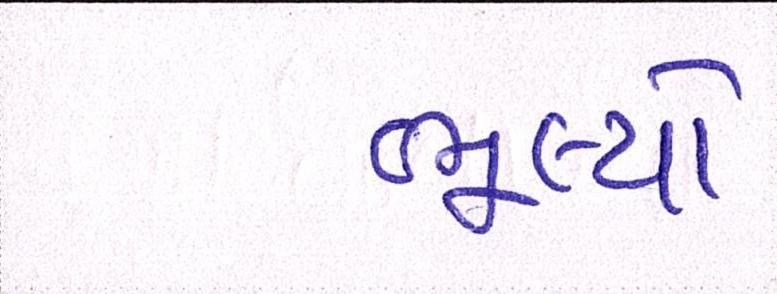 ભૂલ્યો